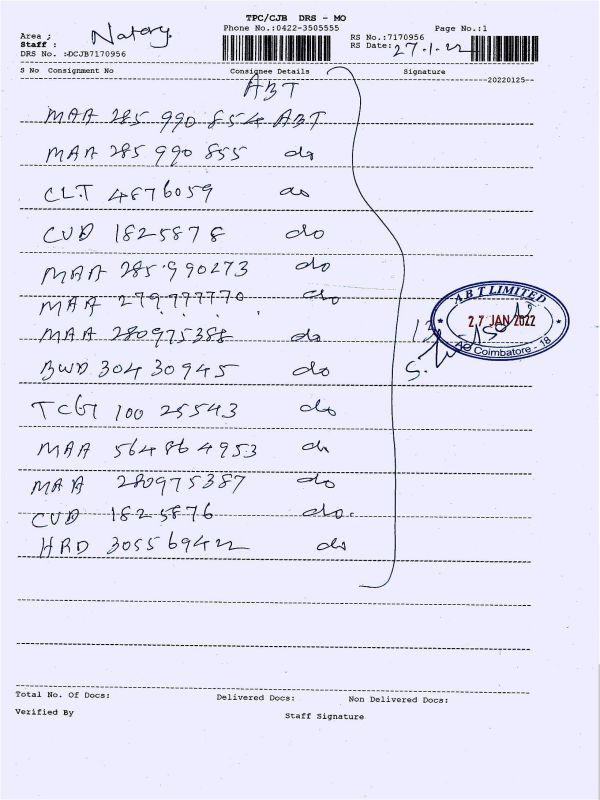 TPC/CJB DRS - MO
Phone No.:0422-3505555 Page No.:1
Area ; RS No.:7170956
Staff : RS Date: 27.1.22
DRS No. :DCJB7170956
S No Consignment No Consignee Details Signature
20220125
ABT
MAA 285 990 854 ABT
MAA 285 990 855 do
CLT 4876059 do
CUD 1825878 do
MAA 285990273 do
MAA 279777770 do
MAA 280975388 do
BWD 30430945 do
TCG 100 25543 do
MAA 564864953 do
MAA 280975387 do
CUD 1825876 do.
HRD 305569422 do
ABT LIMITED
27 JAN 2022
Coimbatore - 18
Total No. Of Docs: Delivered Docs: Non Delivered Docs:
Verified By Staff Signature